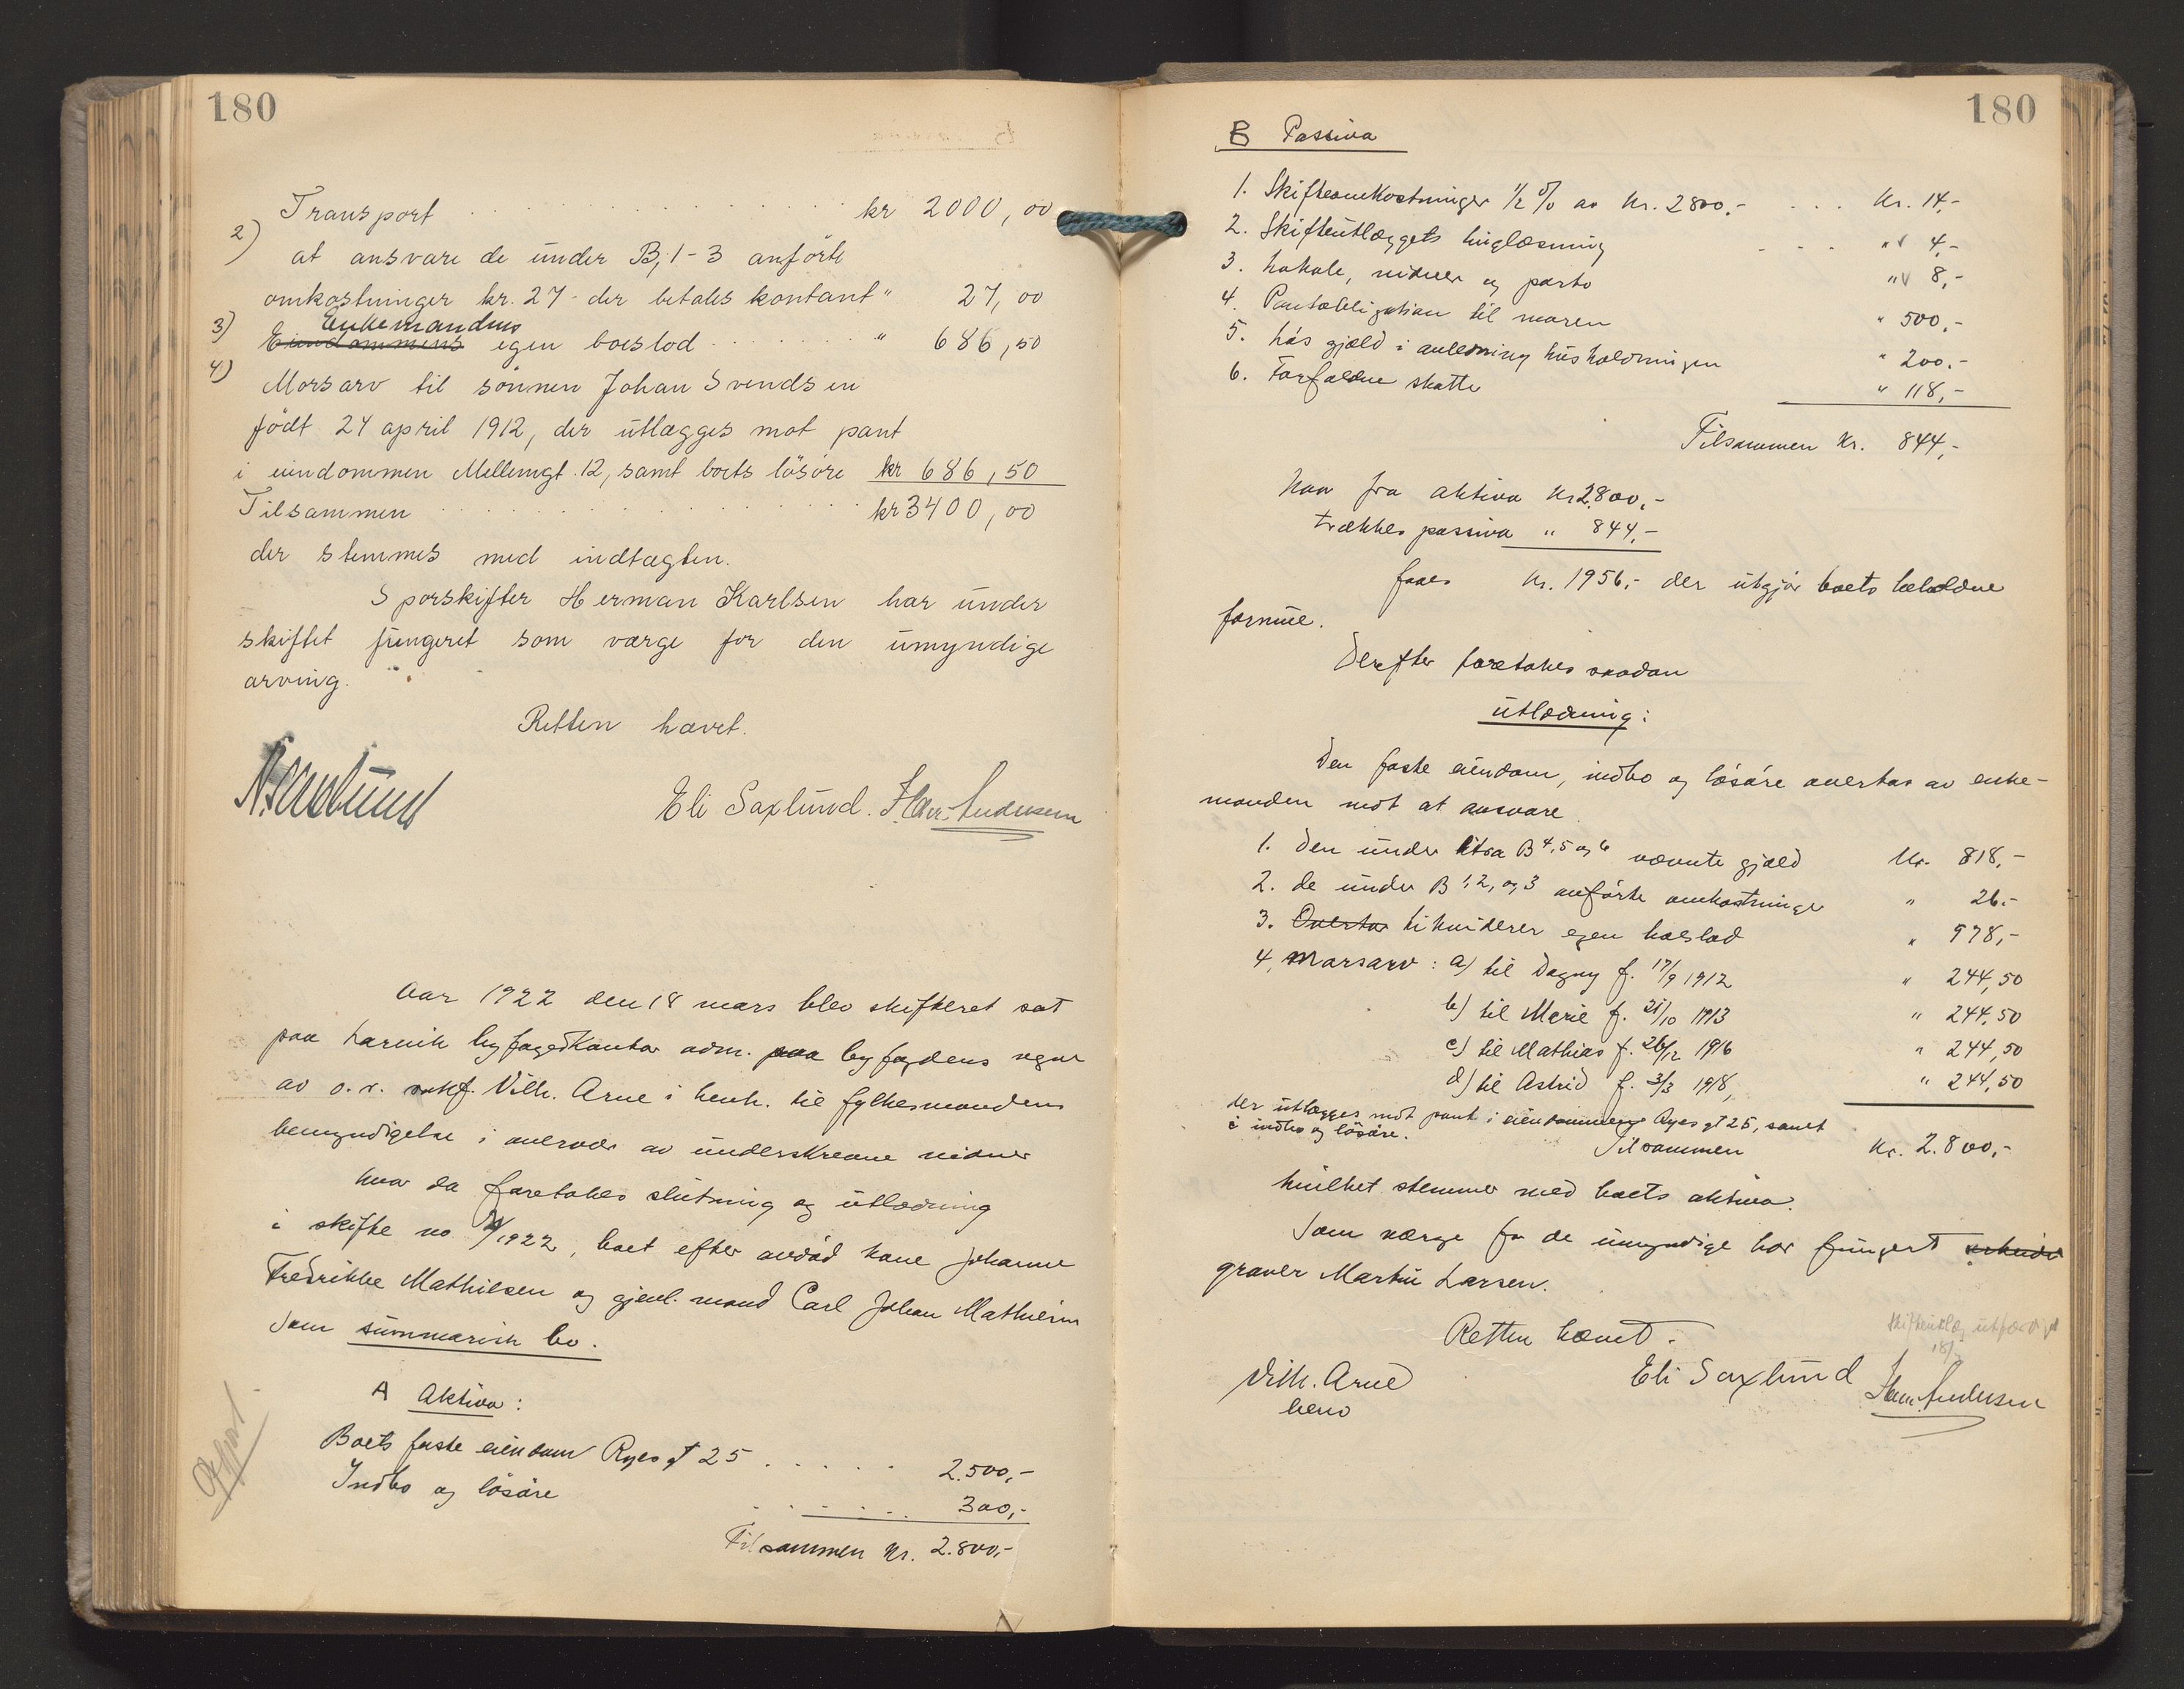 180
Transport kr 2000,00
2)
at ansvare de under B, 1-3 anförte
omkostninger kr. 27- der betales kontant " 27,00
Enkemandens
3) Eiendommens egen boeslod " 686,50
4)
Morsarv til sönnen Johan Svendsen
födt 24 april 1912, der utlægges mot pant
i eiendommen Mellemgt. 12, samt boets lösöre kr 686,50
Tilsammen kr 3400,00
der stemmes med indtægten.
Sporskifter Herman Karlsen har under
skiftet fungeret som værge for den umyndige
arving.
Retten hævet.
Eli Saxlund. Andersen
Aar 1922 den 18 mars blev skifteret sat
paa Larvik byfogedkontor adm. paa byfogdens vegne
av o.r. sakf. Vilh. Arne i henh. til fylkesmandens
bemyndigelse i overvær av underskrevne vidner
hvor da foretokes slutning og utlodning
i skifte no /1922, boet efter avdöd kone Johanne
Fredrikke Mathisen og gjenl. mand Carl Johan Mathisen
som summarisk bo.
A Aktiva:
Boets faste eiendom Ryes gt 25 2.500,-
Indbo og lösöre 300,-
Tilsammen Kr. 2.800,-
180
B Passiva
1. Skifteomkostninger 1/2 % av Kr. 2800.- Kr. 14,-
2. Skifteutlæggets tinglæsning " 4,-
3. Lokale, vidner og porto " 8,-
4. Pantobligation til " 500,-
5. Lös gjæld i anledning husholdningen " 200.-
6. Forfaldne skatter " 118,-
Tilsammen Kr. 844,-
Naar fra aktiva Kr 2.800,-
trækkes passiva " 844,-
faaes Kr. 1956,- der utgjör boets beholdne
formue.
Derefter foretokes saadan
utlodning:
Den faste eiendom, indbo og lösöre overtas av enke-
manden mot at ansvare
1. Den under litra B 4, 5 og 6 nævnte gjæld Kr. 818,-
2. de under B 1, 2, og 3 anförte omkostninger " 26.-
3. Overtar likviderer egen boeslod " 978,-
4. Morsarv: a) til Dagny f. 17/9 1912 " 244,50
b) til Marie f. 21/10 1913 " 244,50
c) til Mathias f. 26/12 1916 " 244,50
d) til Astrid f. 3/3 1918, " 244,50
der utlægges mot pant i eiendommen Ryes gt 25, samt
i indbo og lösöre.
Tilsammen Kr. 2.800,-
hvilket stemmer med boets aktiva.
Som værge for de umyndige har fungert arbeider
graver Martin Larsen.
Retten hævet.
Skifteutlæg utfærdiget
18/3
Vilh. Arne Eli Saxlund Andersen
bem